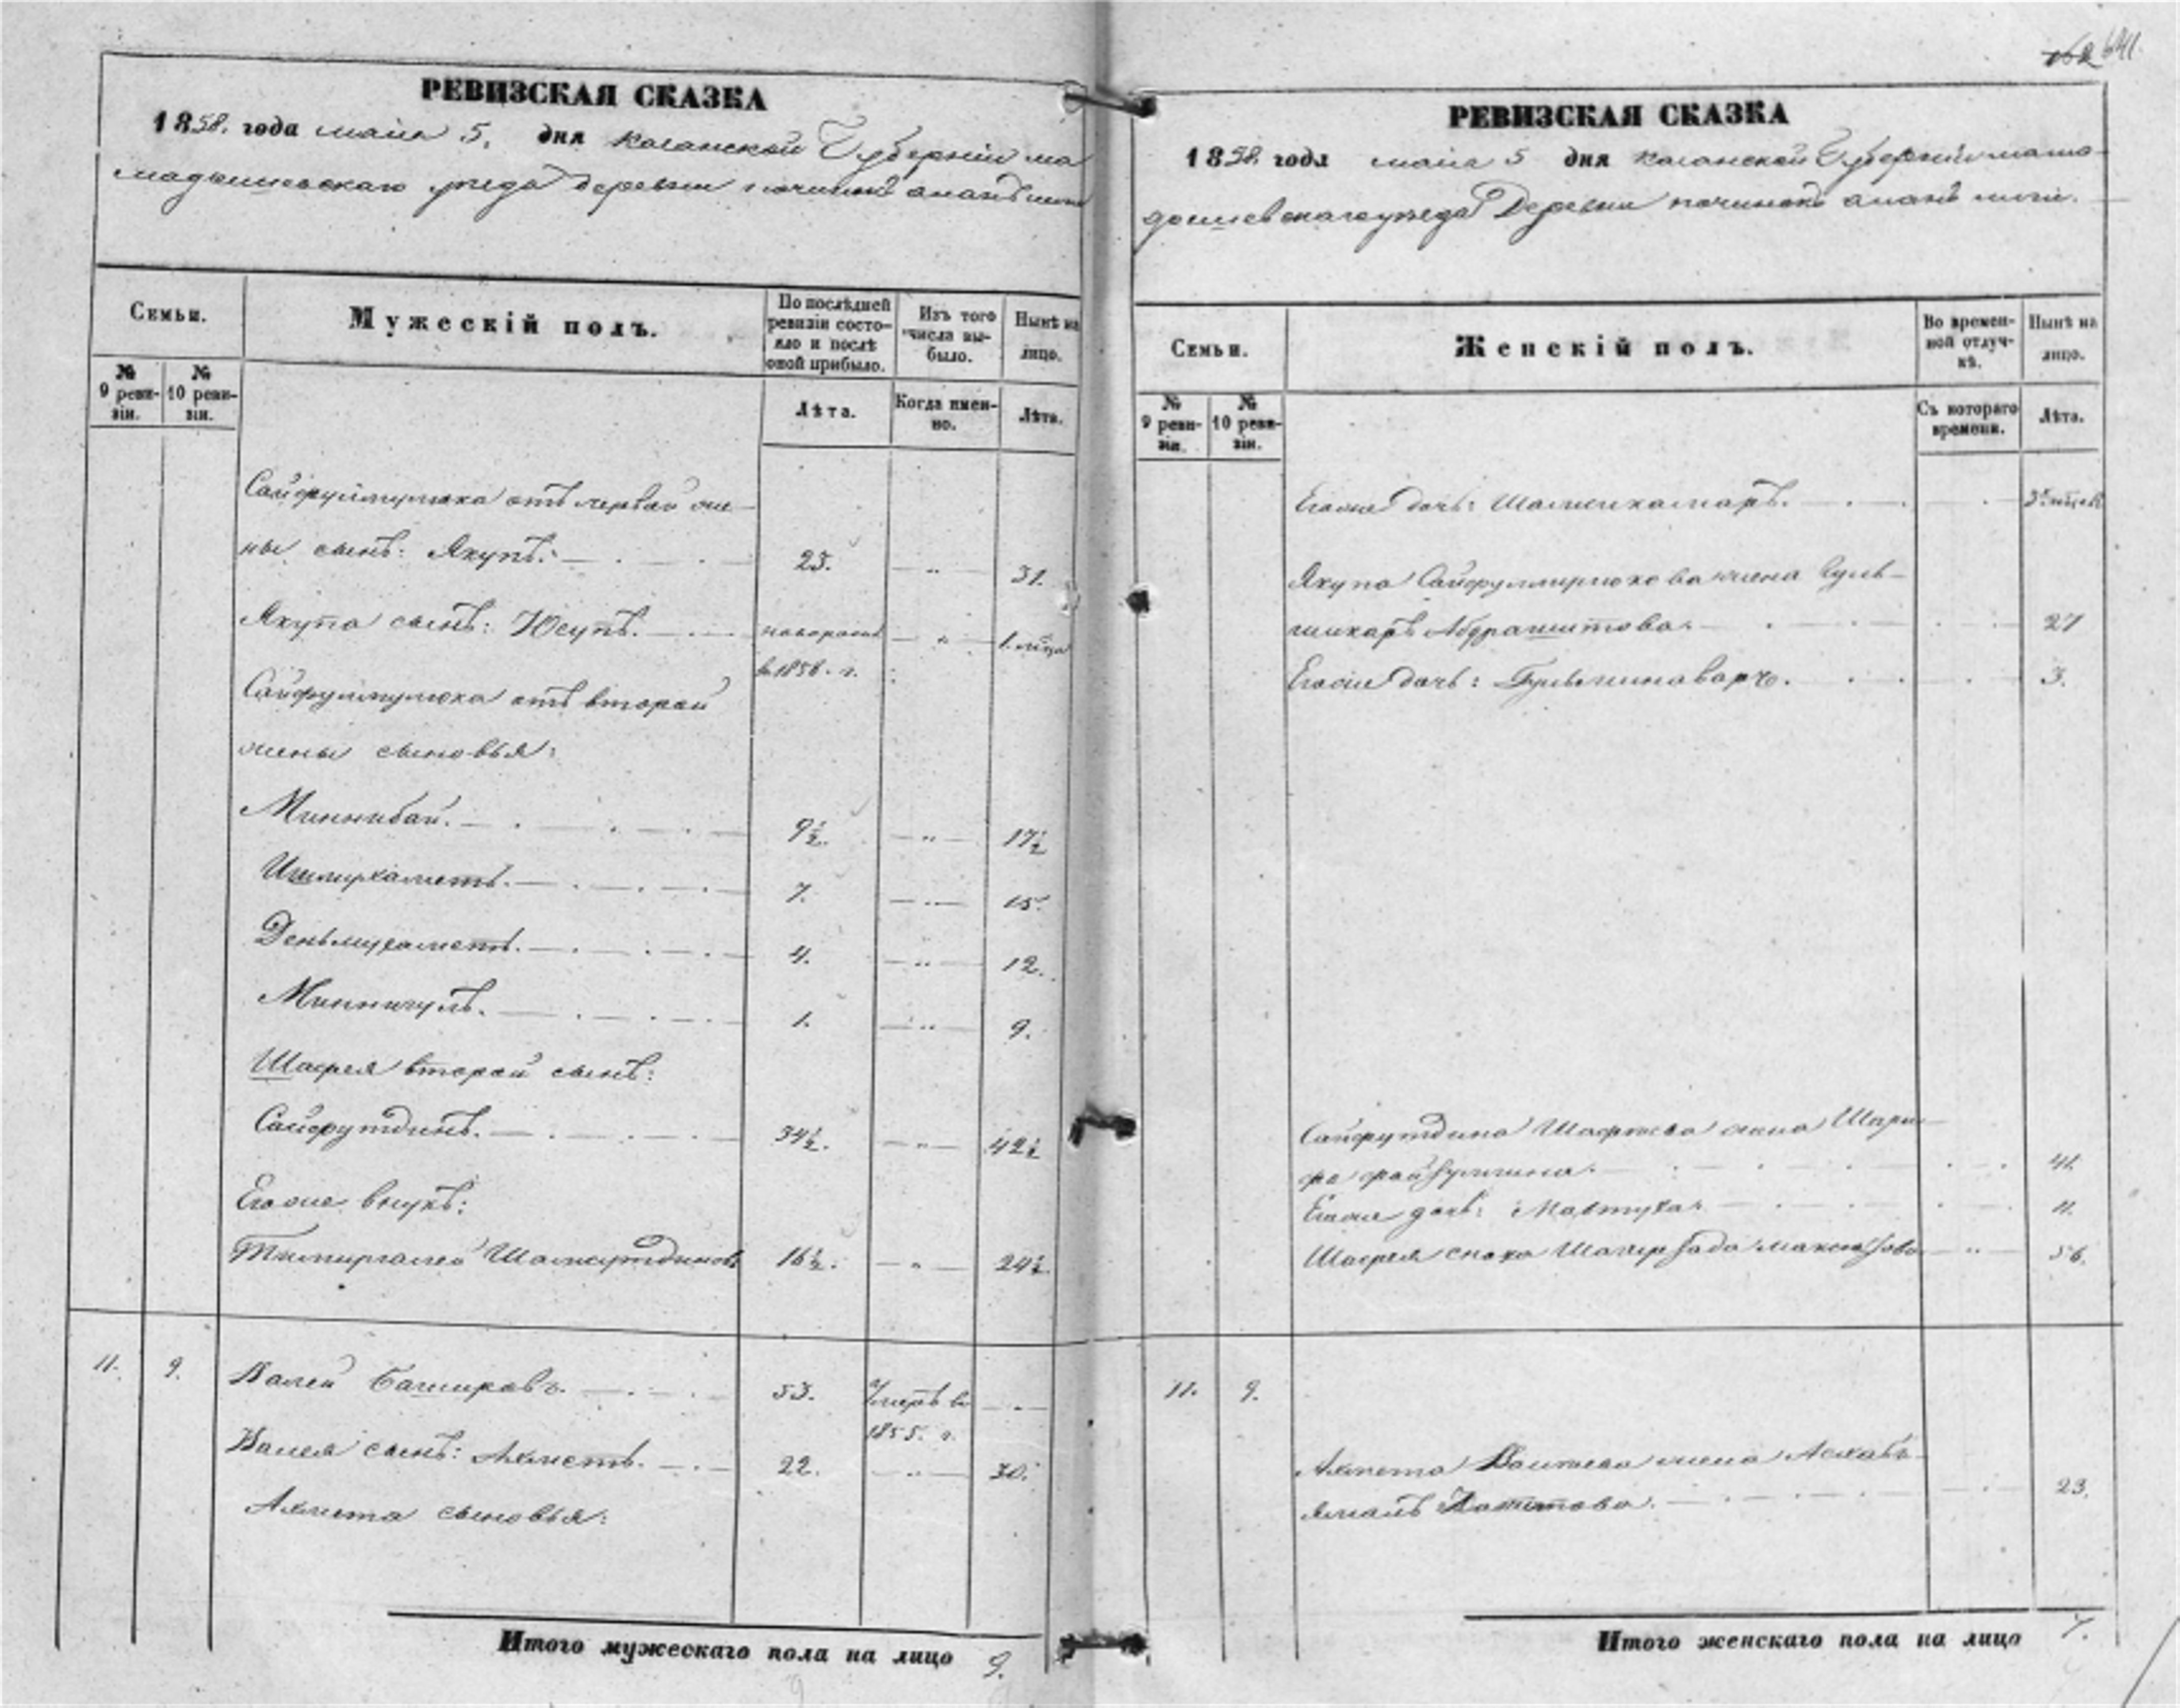 641.
РЕВИЗСКАЯ СКАЗКА
1858. года маія 5. дня Казанской Губерніи ма
мадышевскаго уезда деревни починка
Семьи.
Мужескій полъ.
По послѣдней ревизіи состо-
яло и послѣ оной прибыло.
Изъ того числа вы-
было.
Нынѣ на лицо.
№ 9 реви-
зіи.
№ 10 реви-
зіи.
Лѣта.
Когда имен-
но.
Лѣта.
Сайфулмулюка отъ первой же-
ны сынъ: Якупъ. 23. 31.
Якупа сынъ: Юсупъ. 1.
в 1856. г.
Сайфулмулюка отъ второй
жены сыновья:
Миннибай. 9½. 17½
Ишмухаметъ. 7. 15.
Деньмухаметъ. 4. 12.
Миннигулъ. 1. 9.
Шафея второй сынъ:
Сайфутдинъ. 34½. 42½
Егоже внукъ:
Тимиргалей Шамсутдиновъ 16½. 24½.
11. 9. Валей Башировъ. 53. Умеръ въ
1855. г.
Валея сынъ: Ахметъ. 22. 30.
Ахмета сыновья:
Итого мужескаго пола на лицо 9.
РЕВИЗСКАЯ СКАЗКА
1858. года маія 5 дня Казанской Губерніи мама
дышевскаго уезда Деревни починокъ
Семьи.
Женскій полъ.
Во времен-
ной отлуч-
кѣ.
Нынѣ на лицо.
№ 9 реви-
зіи.
№ 10 реви-
зіи.
Съ котораго времени.
Лѣта.
Егоже дочь: Шамсикамаръ.
Якупа Сайфулмулюкова жена Гуль-
шикаръ Абдрашитова. 27
Егоже дочь: 3.
Сайфутдина Шафеева жена Шари
фа файзуллина. 41.
Егоже дочь: Махтуха. 11.
Шафея сноха Шагирзада Максюзова 56.
11. 9.
Ахмета Валеева жена Асхабъ
ямалъ 23.
Итого женскаго пола на лицо 7.